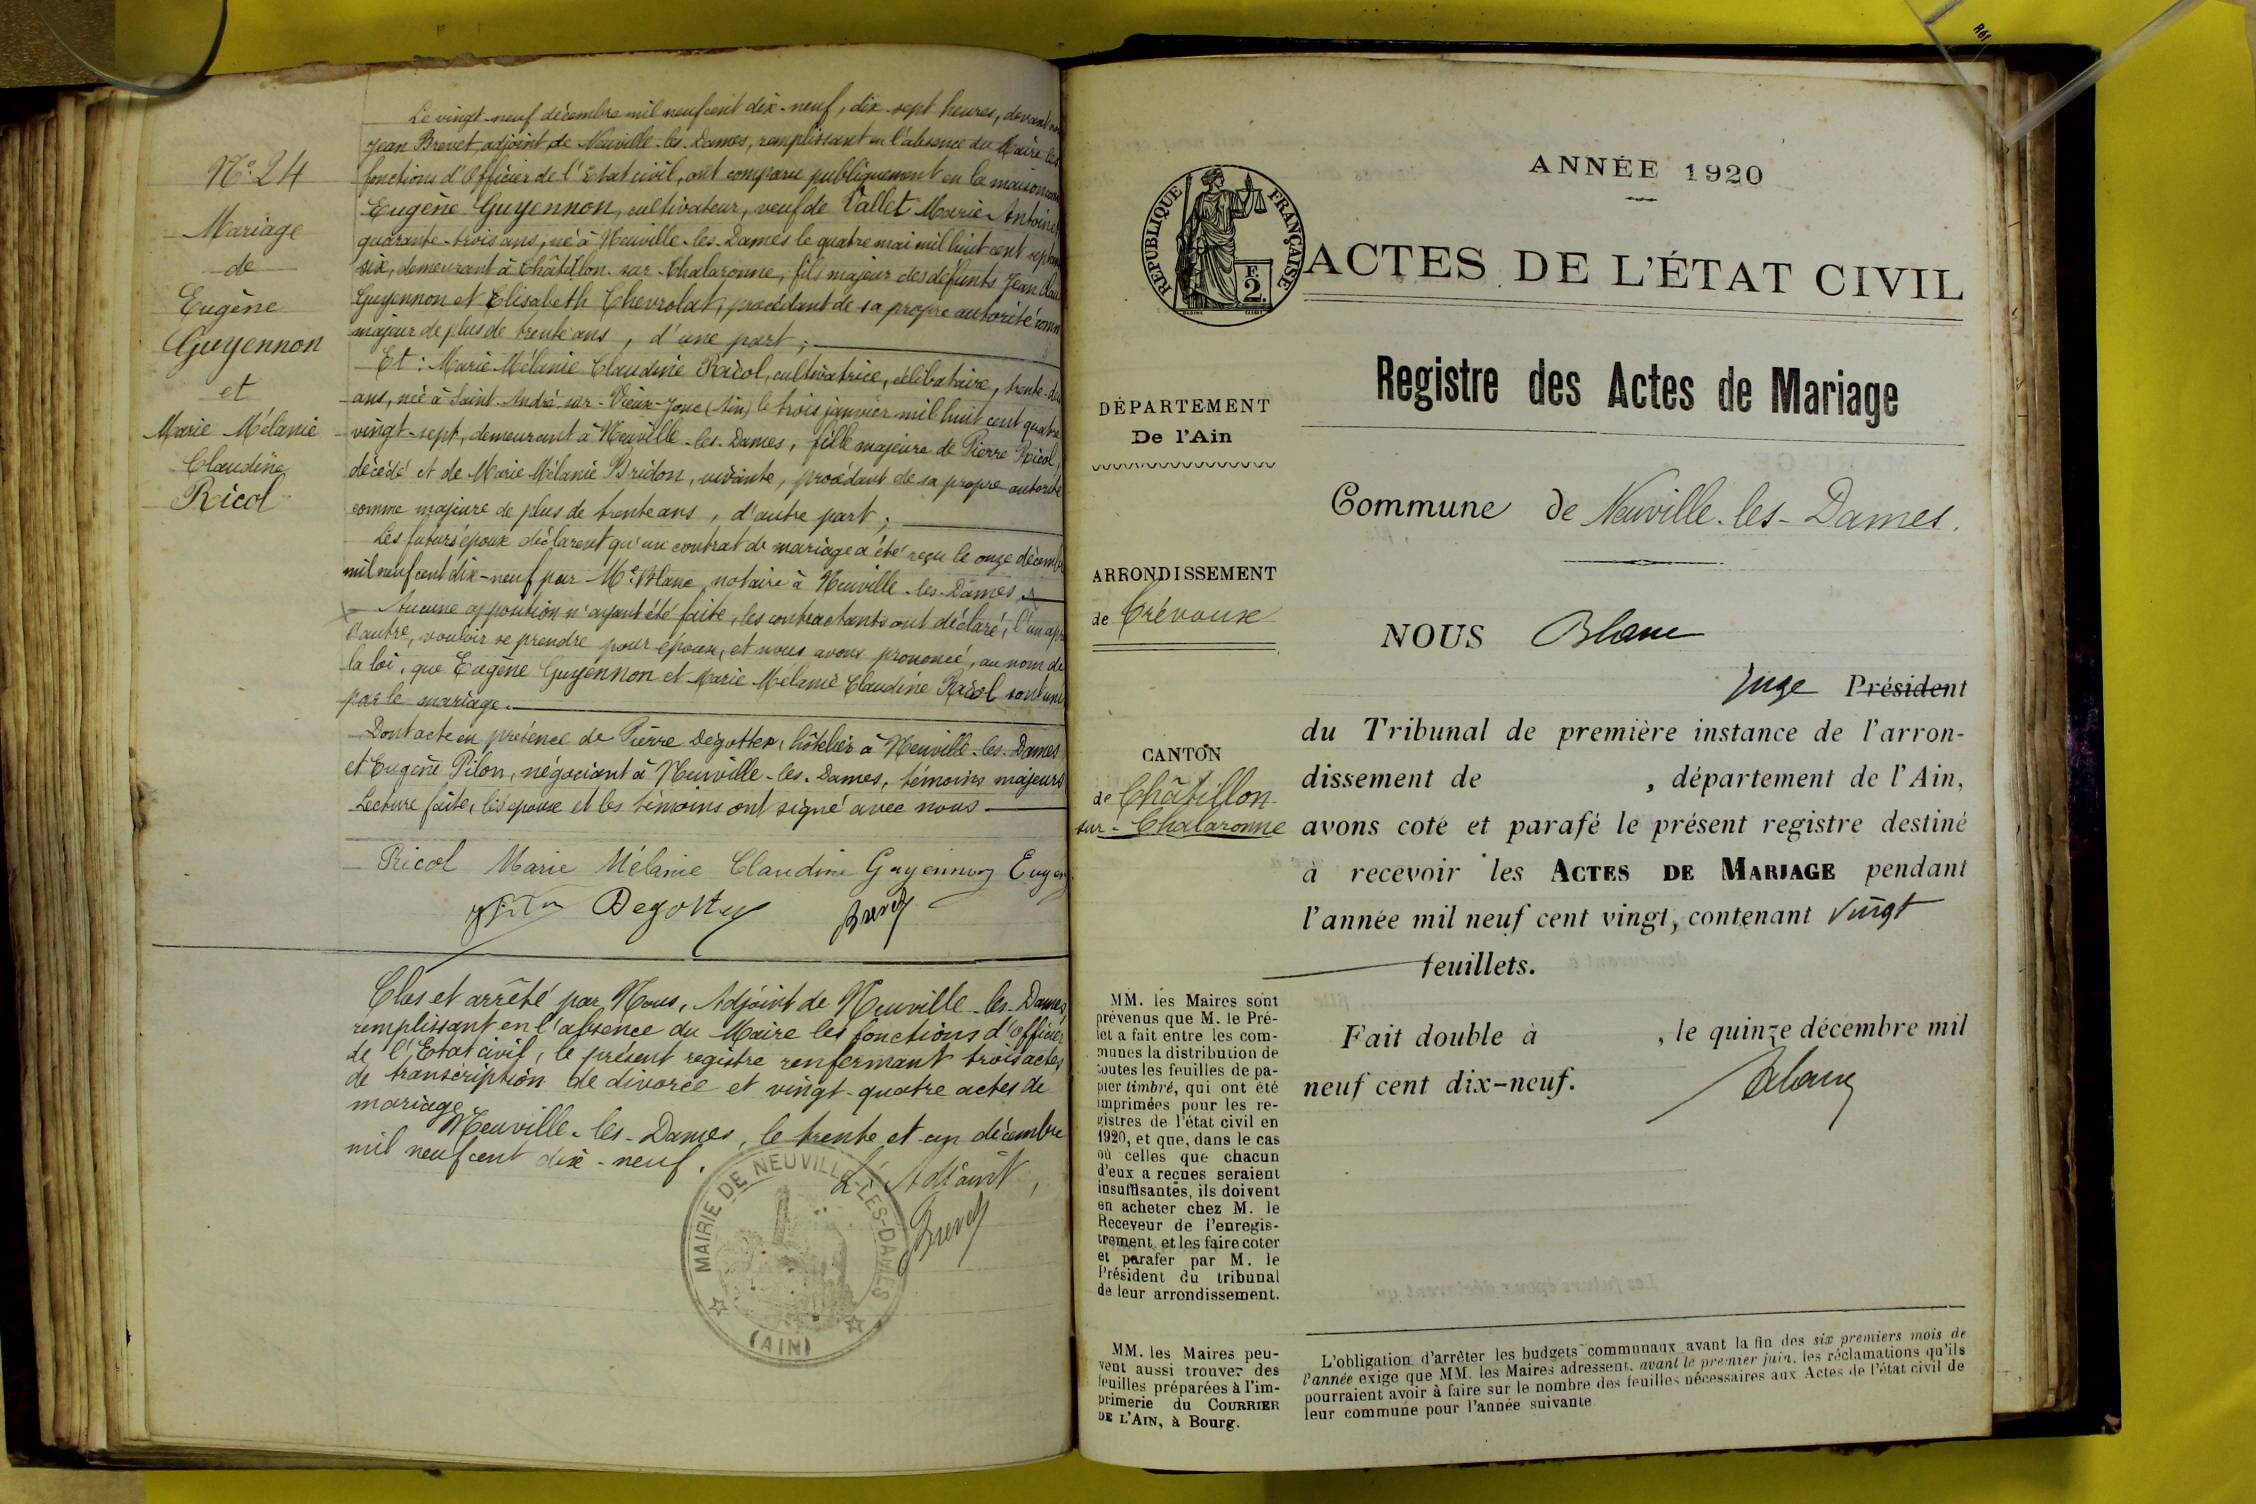 Le vingt-neuf décembre mil neuf cent dix-neuf, dix-sept heures, devant
Jean Brevet, adjoint de Neuville-les-Dames, remplissant en l'absence du Maire les
fonctions d'Officier de l'Etat civil, ont comparu publiquement en la maison
Eugène Guyennon, cultivateur, veuf de Vallet Marie Antoinet
quarante-trois ans, né à Neuville-les-Dames le quatre mai mil huit cent
six, demeurant à Châtillon-sur-Chalaronne, fils majeur des défunts Jean
Guyennon et Elisabeth Chevrolat, procédant de sa propre autorité comm
majeur de plus de trente ans, d'une part;
Et: Marie Mélanie Claudine Ricol, cultivatrice, célibataire, trente-
ans, née à Saint-André-sur-Vieux-Jonc (Ain) le trois janvier mil huit cent quatre
vingt-sept, demeurant à Neuville-les-Dames, fille majeure de Pierre Ricol,
décédé et de Marie Mélanie Bridon, vivante, procédant de sa propre autorité
comme majeure de plus de trente ans, d'autre part;
Les futurs époux déclarent qu'un contrat de mariage a été reçu le onze décemb
mil neuf cent dix-neuf par Me Blanc, notaire à Neuville-les-Dames.
Aucune opposition n'ayant été faite, les contractants ont déclaré, l'un apr
l'autre, vouloir se prendre pour époux, et nous avons prononcé, au nom de
la loi, que Eugène Guyennon et Marie Mélanie Claudine Ricol sont uni
par le mariage.
Dont acte en présence de Pierre Degottex, hôtelier à Neuville-les-Dames
et Eugène Pilon, négociant à Neuville-les-Dames, témoins majeurs
Lecture faite, les époux et les témoins ont signé avec nous
Ricol Marie Mélanie Claudine Guyennon Eugen
Degottex Brevet
Clos et arrêté par Nous, Adjoint de Neuville-les-Dames,
remplissant en l'absence du Maire les fonctions d'Officier
de l'Etat civil, le présent registre renfermant trois actes
de transcription de divorce et vingt-quatre actes de
mariage
Neuville-les-Dames, le trente et un décembre
mil neuf cent dix-neuf.
L'Adjoint,
Brevet
MAIRIE DE NEUVILLE-LES-DAMES
(AIN)
N° 24
Mariage
de
Eugène
Guyennon
et
Marie Mélanie
Claudine
Ricol
ANNÉE 1920
RÉPUBLIQUE FRANÇAISE
F.
2.
ACTES DE L'ÉTAT CIVIL
Registre des Actes de Mariage
DÉPARTEMENT
De l'Ain
Commune de Neuville-les-Dames.
ARRONDISSEMENT
de Trévoux
CANTON
de Châtillon
sur-Chalaronne
NOUS Blanc
Juge Président
du Tribunal de première instance de l'arron-
dissement de , département de l'Ain,
avons coté et parafé le présent registre destiné
à recevoir les ACTES DE MARIAGE pendant
l'année mil neuf cent vingt, contenant vingt
feuillets.
Fait double à , le quinze décembre mil
neuf cent dix-neuf.
Blanc
MM. les Maires sont
prévenus que M. le Pré-
fet a fait entre les com-
munes la distribution de
toutes les feuilles de pa-
pier timbré, qui ont été
imprimées pour les re-
gistres de l'état civil en
1920, et que, dans le cas
où celles que chacun
d'eux a reçues seraient
insuffisantes, ils doivent
en acheter chez M. le
Receveur de l'enregis-
trement et les faire coter
et parafer par M. le
Président du tribunal
de leur arrondissement.
MM. les Maires peu-
vent aussi trouver des
feuilles préparées à l'im-
primerie du COURRIER
DE L'AIN, à Bourg.
L'obligation d'arrêter les budgets communaux avant la fin des six premiers mois de
l'année exige que MM. les Maires adressent, avant le premier juin, les réclamations qu'ils
pourraient avoir à faire sur le nombre des feuilles nécessaires aux Actes de l'état civil de
leur commune pour l'année suivante